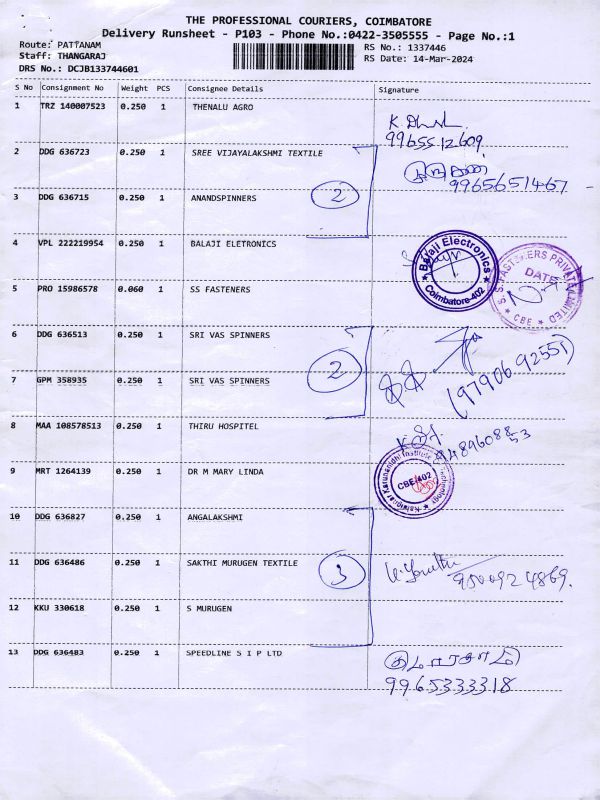 THE PROFESSIONAL COURIERS, COIMBATORE
Delivery Runsheet - P103 - Phone No.:0422-3505555 - Page No.:1
Route: PATTANAM RS No.: 1337446
Staff: THANGARAJ RS Date: 14-Mar-2024
DRS No.: DCJB133744601
S No Consignment No Weight PCS Consignee Details Signature
1 TRZ 140007523 0.250 1 THENALU AGRO
9965512609
2 DDG 636723 0.250 1 SREE VIJAYALAKSHMI TEXTILE
9965651467
3 DDG 636715 0.250 1 ANANDSPINNERS
2
4 VPL 222219954 0.250 1 BALAJI ELETRONICS
Balaji Electronics
Coimbatore-402
S.S. FASTENERS PRIVATE LIMITED
DATE
CBE
5 PRO 15986578 0.060 1 SS FASTENERS
6 DDG 636513 0.250 1 SRI VAS SPINNERS
2
(97906 92551)
7 GPM 358935 0.250 1 SRI VAS SPINNERS
8 MAA 108578513 0.250 1 THIRU HOSPITEL
9489608853
9 MRT 1264139 0.250 1 DR M MARY LINDA
Kalaignar Karunanidhi Institute Technology
CBE-402
10 DDG 636827 0.250 1 ANGALAKSHMI
11 DDG 636486 0.250 1 SAKTHI MURUGEN TEXTILE
3
9500924869.
12 KKU 330618 0.250 1 S MURUGEN
13 DDG 636483 0.250 1 SPEEDLINE S I P LTD
9965333318